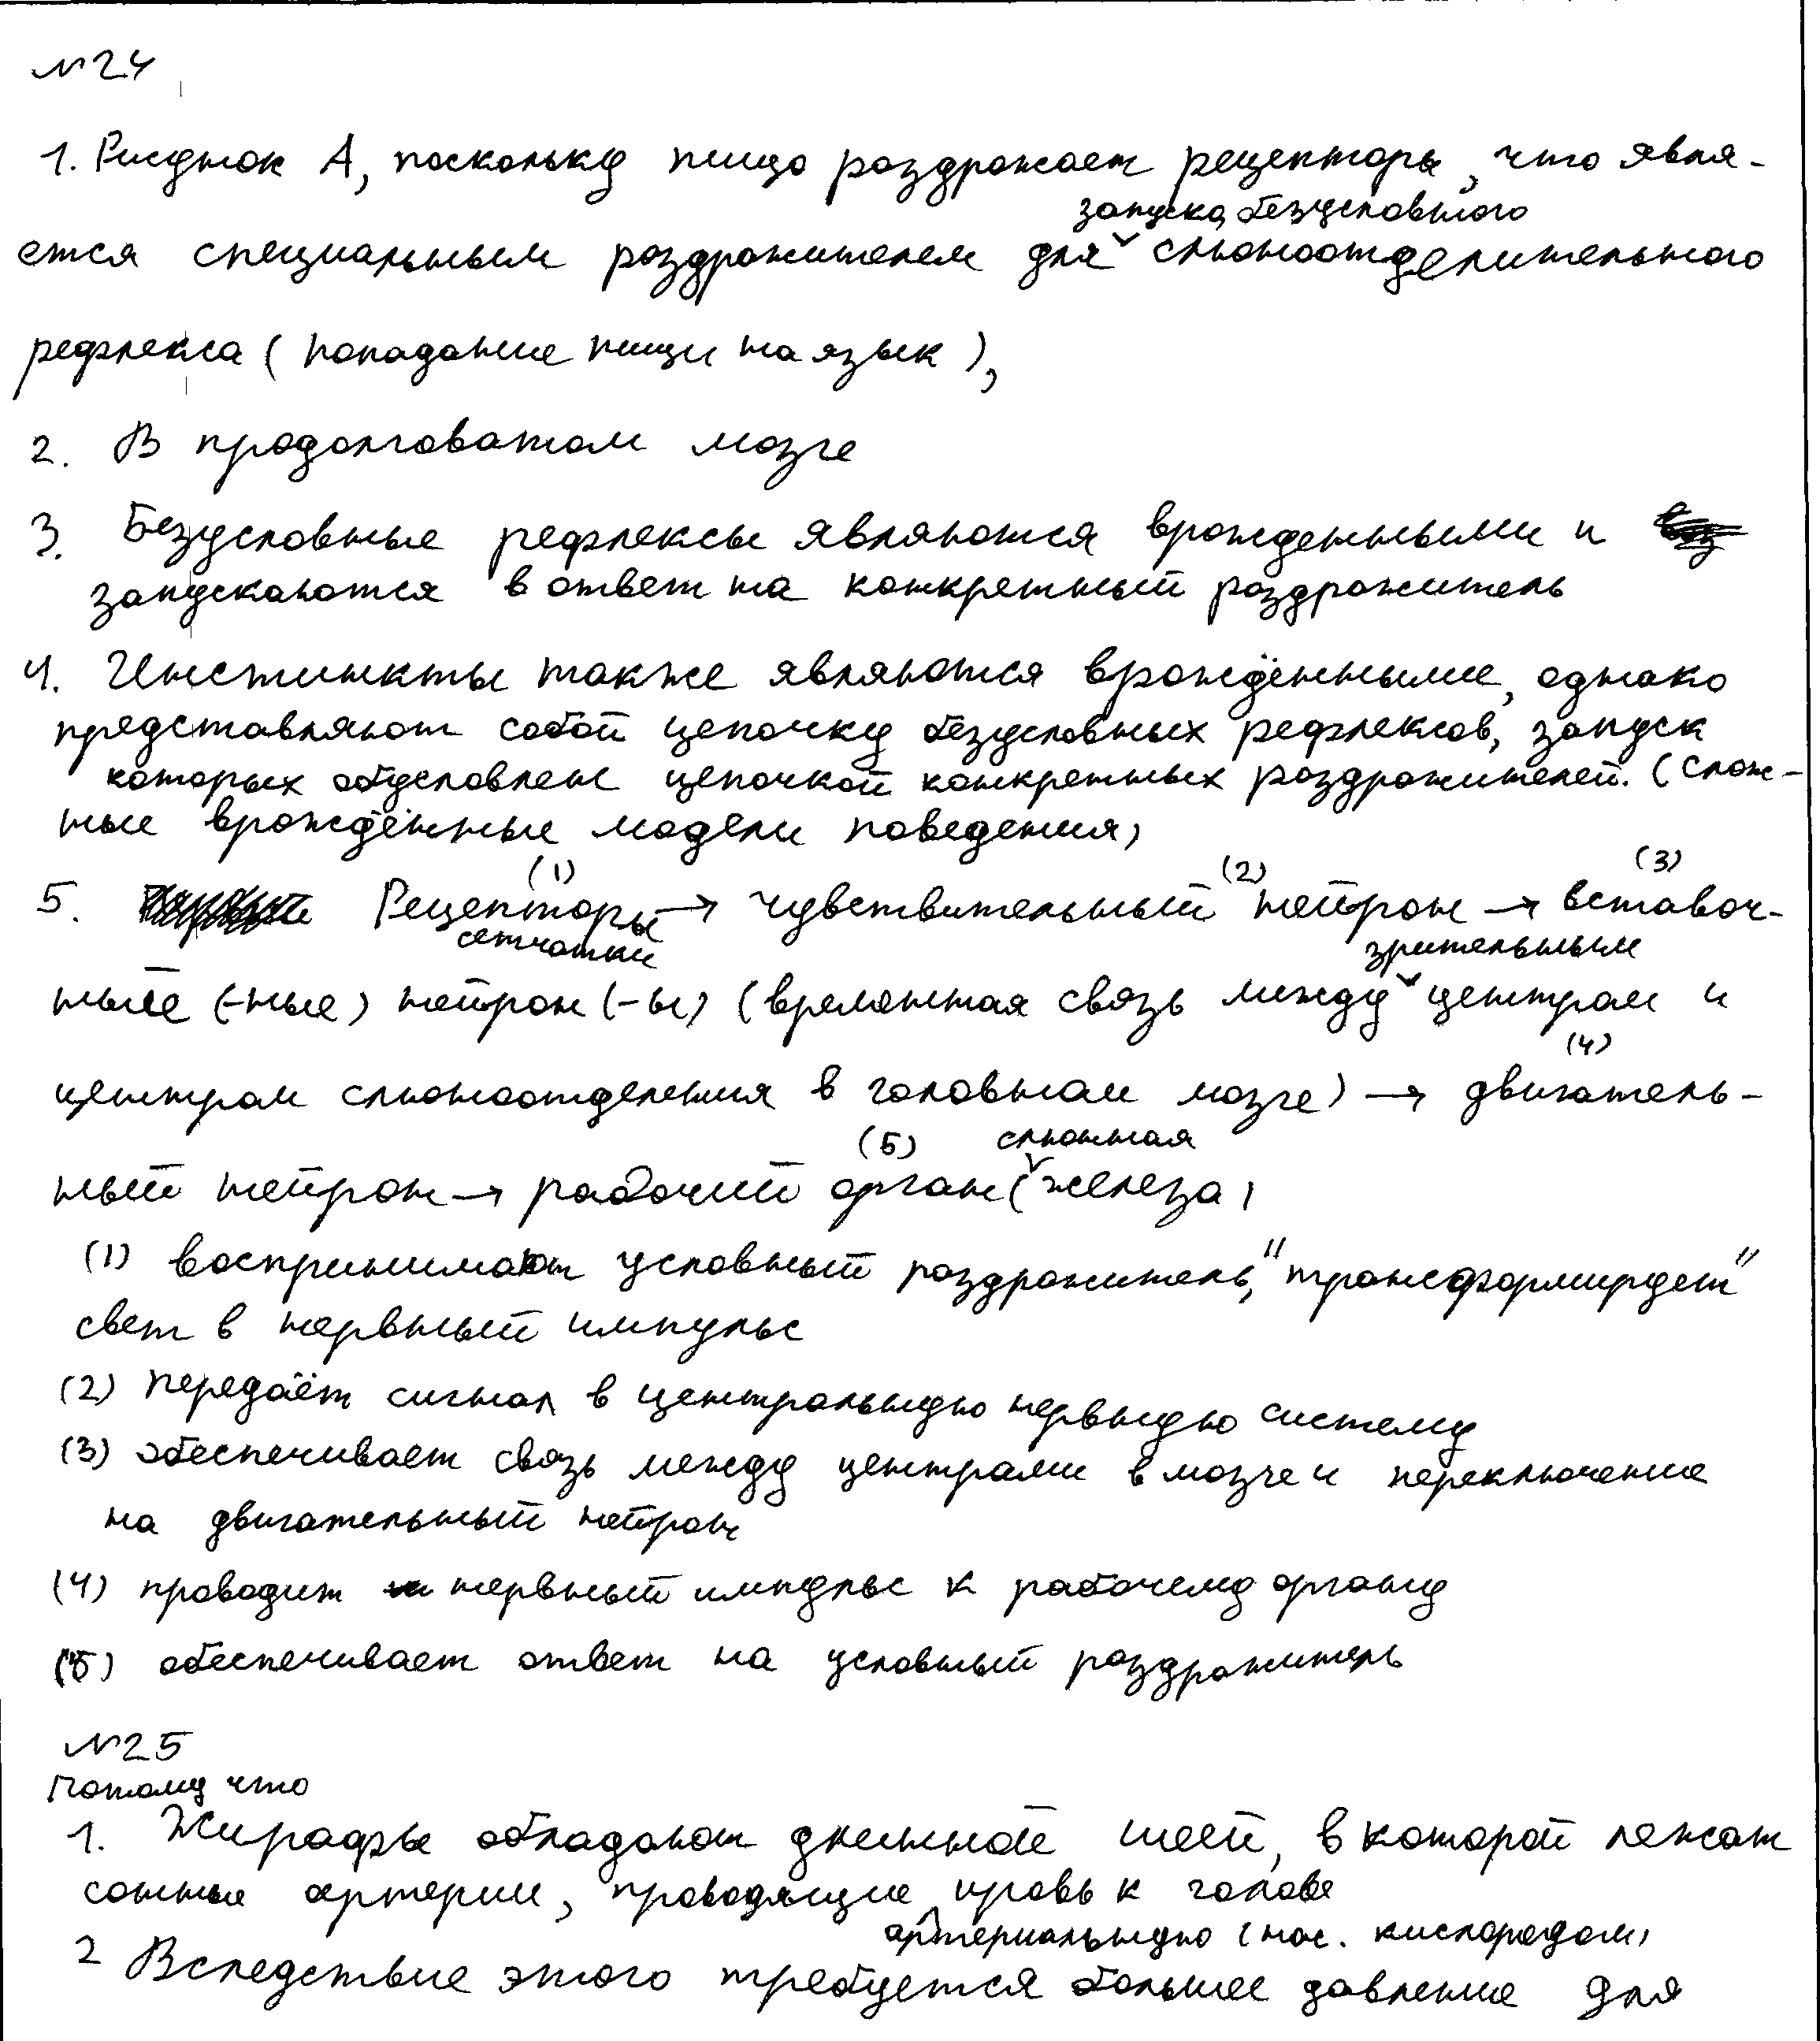 №24
1. Рисунок А, поскольку пища раздражает рецепторы, что явля-
запуска безусловного
ется специальным раздражителем для ˅ слюноотделительного
рефлекса (попадание пищи на язык),
2. В продолговатом мозге
3. Безусловные рефлексы являются врожденными и
запускаются в ответ на конкретный раздражитель
4. Инстинкты также являются врождёнными, однако
представляют собой цепочку безусловных рефлексов, запуск
которых обусловлен цепочкой конкретных раздражителей. (слож-
ные врождённые модели поведения)
(1) (2) (3)
5. Рецепторы → чувствительный нейрон → вставоч-
сетчатки зрительным
ный (-ные) нейрон (-ы) (временная связь между ˅ центром и
(4)
центром слюноотделения в головном мозге) → двигатель-
(5) слюнная
ный нейрон → рабочий орган (˅ железа)
(1) воспринимают условный раздражитель, "трансформирует"
свет в нервный импульс
(2) передаёт сигнал в центральную нервную систему
(3) обеспечивает связь между центрами в мозге и переключение
на двигательный нейрон
(4) проводит нервный импульс к рабочему органу
(5) обеспечивает ответ на условный раздражитель
№25
Потому что
1. Жирафы обладают длинной шеей, в которой лежат
сонные артерии, проводящие кровь к голове
артериальную (нас. кислородом)
2 Вследствие этого требуется большее давление для